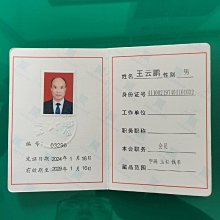 编号: 03296
发证日期 2024年1月16日
有效期至 2029年1月16日
姓名 王云鹏 性别 男
身份证号
工作单位
职务职称
本会职务 会员
藏品范围